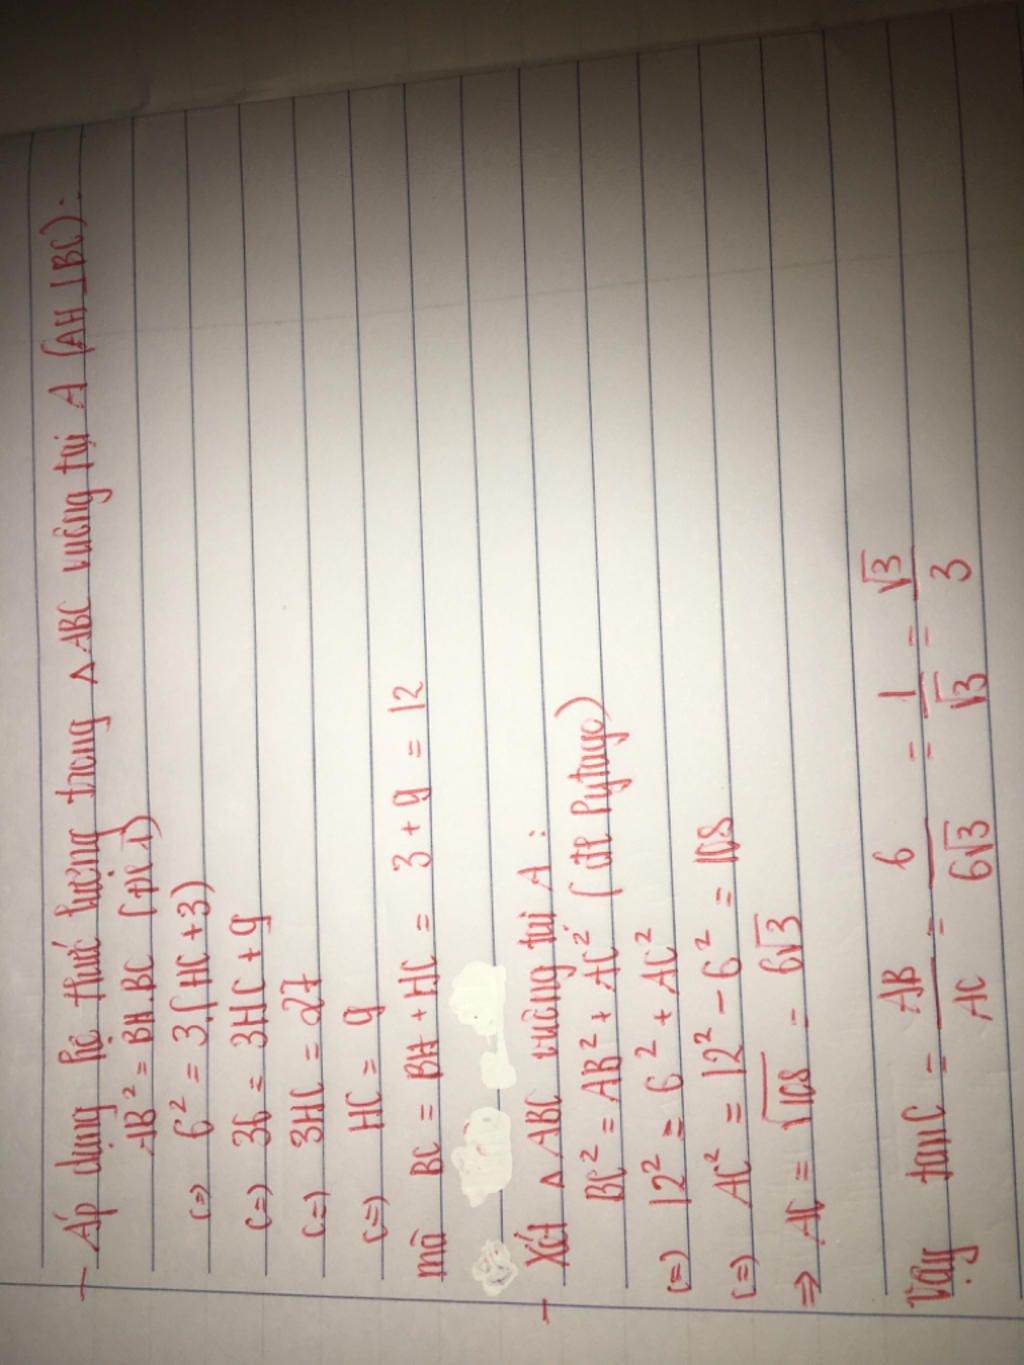 - Áp dụng hệ thức lượng trong △ABC vuông tại A (AH ⊥ BC):
AB² = BH.BC (đl 1)
<=> 6² = 3.(HC + 3)
<=> 36 = 3HC + 9
<=> 3HC = 27
<=> HC = 9
mà BC = BH + HC = 3 + 9 = 12
- Xét △ABC vuông tại A:
BC² = AB² + AC² (đl Pytago)
<=> 12² = 6² + AC²
<=> AC² = 12² - 6² = 108
=> AC = √108 = 6√3
Vậy tanC = AB/AC = 6/6√3 = 1/√3 = √3/3